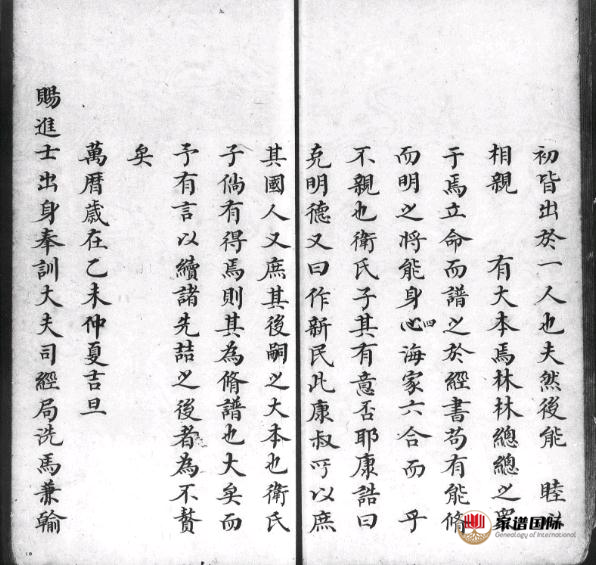 初皆出於一人也夫然後能 睦
相親 有大本焉林林總總之衆
于焉立命而譜之於經書苟有能脩
而明之將能身心四海家六合而 乎
不親也衛氏子其有意否耶康誥曰
克明德又曰作新民此康叔所以庶
其國人又庶其後嗣之大本也衛氏
子倘有得焉則其為脩譜也大矣而
予有言以續諸先喆之後者為不贅
矣
萬曆歲在乙未仲夏吉旦
賜進士出身奉訓大夫司經局洗馬兼翰
家谱国际
Genealogy of International